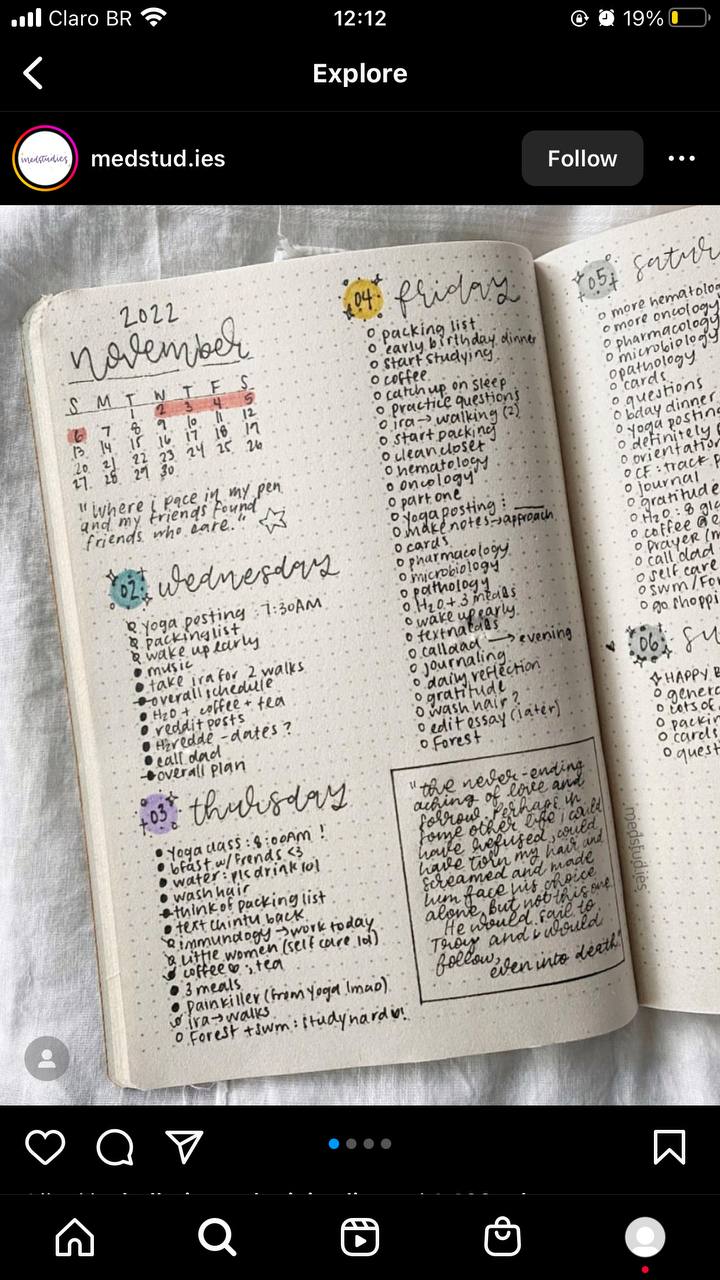 Claro BR 12:12 19%
Explore
medstudies
medstud.ies
Follow
2022
november
S M T W T F S
1 2 3 4 5
6 7 8 9 10 11 12
13 14 15 16 17 18 19
20 21 22 23 24 25 26
27 28 29 30
"Where i pace in my pen
and my friends found
friends who care."
02 wednesday
yoga posting : 7:30AM
packing list
wake up early
music
take ira for 2 walks
overall schedule
H2O + coffee + tea
reddit posts
dates ?
call dad
overall plan
03 thursday
Yoga class : 8:00AM !
bfast w/ frends <3
water : pls drink lol
wash hair
think of packing list
text chintu back
immundogy → work today
Little women (self care lol)
coffee , tea
3 meals
painkiller (from yoga lmao)
ira → walks
Forest + swm : study hard
04 friday
packing list
early birthday dinner
start studying
coffee
catch up on sleep
practice questions
ira → walking (2)
start packing
clean closet
hematology
oncology
part one
Yoga posting :
make notes → approach
cards
pharmacology
microbiology
pathology
H2O + 3 meals
wake up early
call dad → evening
journaling
daily reflection
gratitude
wash hair ?
edit essay (later)
Forest
"the never-ending
aching of love and
sorrow. Perhaps in
some other life i could
have refused, could
have torn my hair and
screamed and made
him face his choice
alone. But not this one.
He would sail to
Troy and i would
follow,
even into death"
05 satur
more hematolo
more oncology
pharmacology
microbiology
pathology
cards
questions
bday dinner
yoga postin
definitely
orientation
CF : track p
journal
gratitude
H2O : 8 gl
coffee @
prayer (m
call dad
self care
swm / For
go shoppi
06 su
HAPPY B
genera
lots of
packin
cards
quest
medstudies